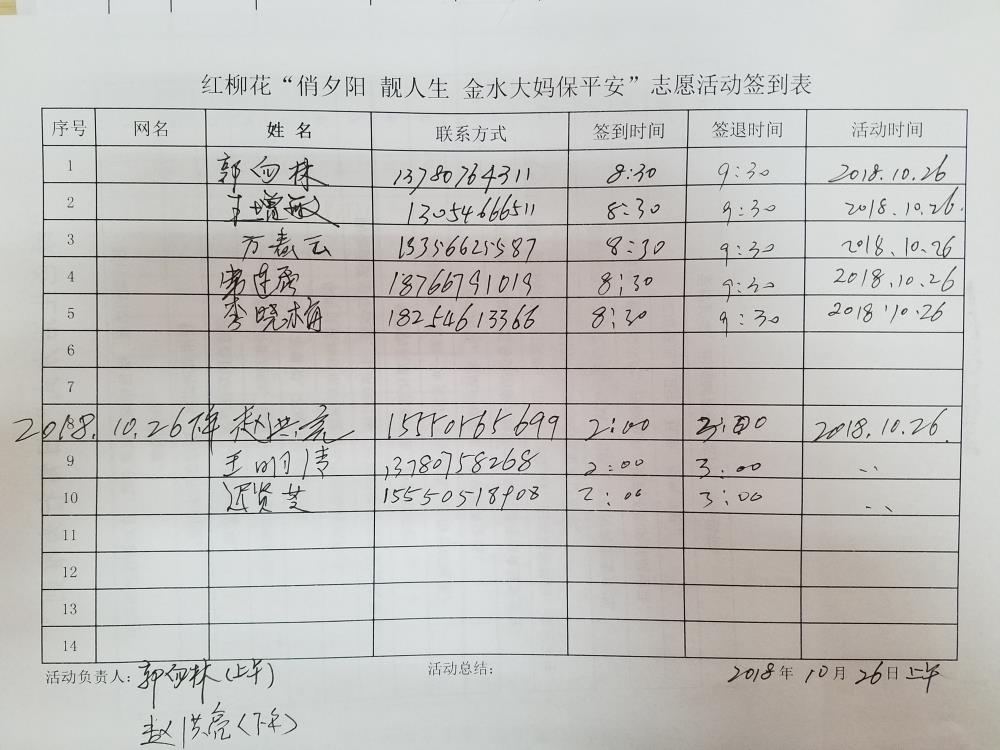 红柳花“俏夕阳 靓人生 金水大妈保平安”志愿活动签到表
序号 网名 姓名 联系方式 签到时间 签退时间 活动时间
1 郭向林 13780764311 8:30 9:30 2018.10.26
2 王增敏 13054666511 8:30 9:30 2018.10.26.
3 方春云 13356625587 8:30 9:30 2018.10.26
4 18766791019 8:30 9:30 2018.10.26
5 李晓梅 18254613366 8:30 9:30 2018.10.26
6
7
8 2018.10.26下午 赵洪亮 15550565699 2:00 3:00 2018.10.26.
9 王明清 13780758268 2:00 3:00 、、
10 贤芝 15550518908 2:00 3:00 、、
11
12
13
14
活动负责人: 郭向林(上午) 活动总结: 2018年10月26日上午
赵洪亮(下午)